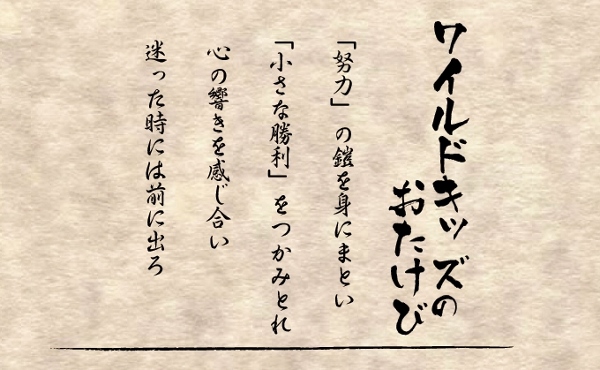 ワイルドキッズの
おたけび
「努力」の鎧を身にまとい
「小さな勝利」をつかみとれ
心の響きを感じ合い
迷った時には前に出ろ